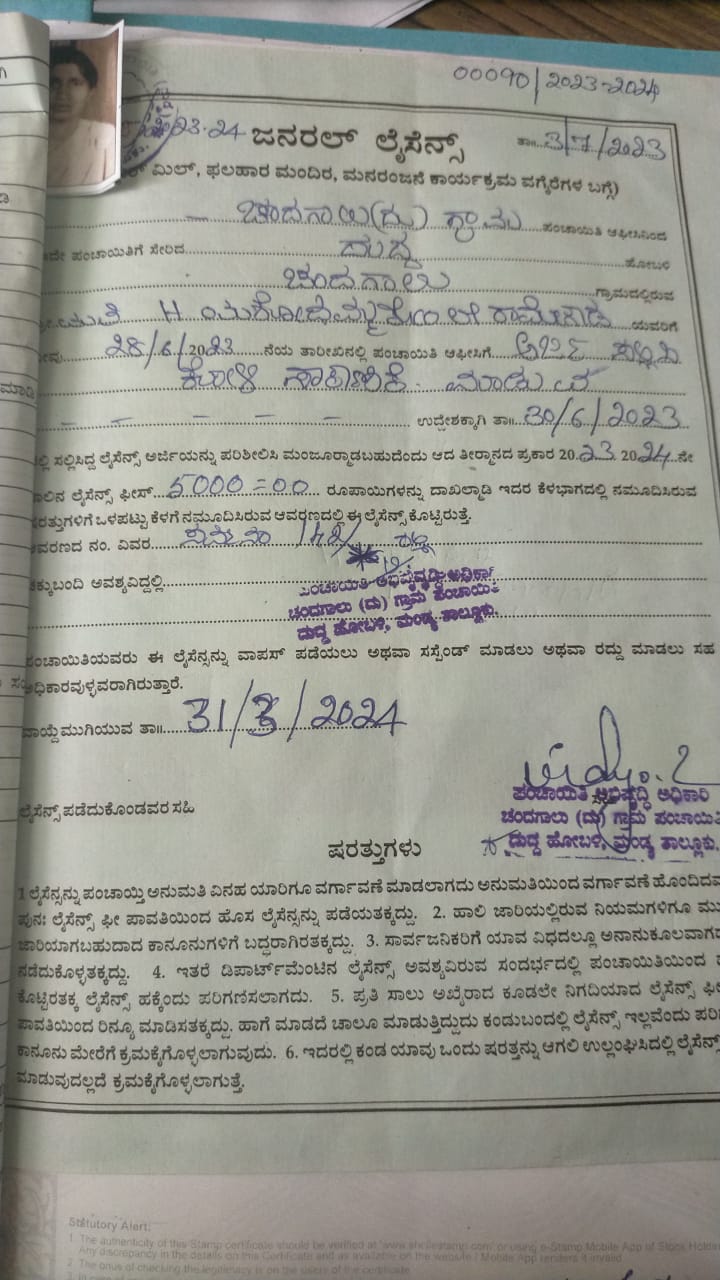 00090/2023-2024
23-24 ಜನರಲ್ ಲೈಸೆನ್ಸ್ ತಾ॥ 3/7/2023
ಮಿಲ್, ಫಲಹಾರ ಮಂದಿರ, ಮನರಂಜನೆ ಕಾರ್ಯಕ್ರಮ ವಗೈರೆಗಳ ಬಗ್ಗೆ)
ಚಂದಗಾಲು(ದು) ಗ್ರಾಮ ಪಂಚಾಯಿತಿ ಆಫೀಸಿನಿಂದ
ಪಂಚಾಯಿತಿಗೆ ಸೇರಿದ ದುದ್ದ ಹೋಬಳಿ
ಚಂದಗಾಲು ಗ್ರಾಮದಲ್ಲಿರುವ
H ಯವರಿಗೆ
28/6/2023 ನೆಯ ತಾರೀಖಿನಲ್ಲಿ ಪಂಚಾಯಿತಿ ಆಫೀಸಿಗೆ ಅರ್ಜಿ ಸಲ್ಲಿಸಿ
ಕೋಳಿ ಸಾಕಾಣಿಕೆ ಮಾಡುವ
ಉದ್ದೇಶಕ್ಕಾಗಿ ತಾ॥ 30/6/2023
ಸಲ್ಲಿಸಿದ್ದ ಲೈಸೆನ್ಸ್ ಅರ್ಜಿಯನ್ನು ಪರಿಶೀಲಿಸಿ ಮಂಜೂರ್‍ಮಾಡಬಹುದೆಂದು ಆದ ತೀರ್ಮಾನದ ಪ್ರಕಾರ 2023 2024ನೇ
ಲೈಸೆನ್ಸ್ ಫೀಸ್ 5000=00 ರೂಪಾಯಿಗಳನ್ನು ದಾಖಲ್ಮಾಡಿ ಇದರ ಕೆಳಭಾಗದಲ್ಲಿ ನಮೂದಿಸಿರುವ
ಒಳಪಟ್ಟು ಕೆಳಗೆ ನಮೂದಿಸಿರುವ ಆವರಣದಲ್ಲಿ ಈ ಲೈಸೆನ್ಸ್ ಕೊಟ್ಟಿರುತ್ತೆ.
ನಂ. ವಿವರ
ಅವಶ್ಯವಿದ್ದಲ್ಲಿ
ಪಂಚಾಯಿತಿ ಅಭಿವೃದ್ಧಿ ಅಧಿಕಾರಿ
ಚಂದಗಾಲು (ದು) ಗ್ರಾಮ ಪಂಚಾಯಿತಿ
ದುದ್ದ ಹೋಬಳಿ, ಮಂಡ್ಯ ತಾಲ್ಲೂಕು.
ಪಂಚಾಯಿತಿಯವರು ಈ ಲೈಸೆನ್ಸನ್ನು ವಾಪಸ್ ಪಡೆಯಲು ಅಥವಾ ಸಸ್ಪೆಂಡ್ ಮಾಡಲು ಅಥವಾ ರದ್ದು ಮಾಡಲು ಸಹ
ಅಧಿಕಾರವುಳ್ಳವರಾಗಿರುತ್ತಾರೆ.
ವಾಯ್ದೆಮುಗಿಯುವ ತಾ॥ 31/3/2024
ಲೈಸೆನ್ಸ್ ಪಡೆದುಕೊಂಡವರ ಸಹಿ
ಪಂಚಾಯಿತಿ ಅಭಿವೃದ್ಧಿ ಅಧಿಕಾರಿ
ಚಂದಗಾಲು (ದು) ಗ್ರಾಮ ಪಂಚಾಯಿತಿ
ದುದ್ದ ಹೋಬಳಿ, ಮಂಡ್ಯ ತಾಲ್ಲೂಕು.
ಷರತ್ತುಗಳು
1 ಲೈಸೆನ್ಸನ್ನು ಪಂಚಾಯ್ತಿ ಅನುಮತಿ ವಿನಹ ಯಾರಿಗೂ ವರ್ಗಾವಣೆ ಮಾಡಲಾಗದು ಅನುಮತಿಯಿಂದ ವರ್ಗಾವಣೆ
ಪುನಃ ಲೈಸೆನ್ಸ್ ಫೀ ಪಾವತಿಯಿಂದ ಹೊಸ ಲೈಸೆನ್ಸನ್ನು ಪಡೆಯತಕ್ಕದ್ದು. 2. ಹಾಲಿ ಜಾರಿಯಲ್ಲಿರುವ ನಿಯಮಗಳಿಗೂ
ಜಾರಿಯಾಗಬಹುದಾದ ಕಾನೂನುಗಳಿಗೆ ಬದ್ಧರಾಗಿರತಕ್ಕದ್ದು. 3. ಸಾರ್ವಜನಿಕರಿಗೆ ಯಾವ ವಿಧದಲ್ಲೂ
ನಡೆದುಕೊಳ್ಳತಕ್ಕದ್ದು. 4. ಇತರೆ ಡಿಪಾರ್ಟ್‌ಮೆಂಟಿನ ಲೈಸೆನ್ಸ್ ಅವಶ್ಯವಿರುವ ಸಂದರ್ಭದಲ್ಲಿ ಪಂಚಾಯಿತಿಯಿಂದ
ಕೊಟ್ಟಿರತಕ್ಕ ಲೈಸೆನ್ಸ್ ಹಕ್ಕೆಂದು ಪರಿಗಣಿಸಲಾಗದು. 5. ಪ್ರತಿ ಸಾಲು ಅಖೈರಾದ ಕೂಡಲೇ ನಿಗದಿಯಾದ ಲೈಸೆನ್ಸ್ ಫೀ
ಪಾವತಿಯಿಂದ ರಿನ್ಯೂ ಮಾಡಿಸತಕ್ಕದ್ದು. ಹಾಗೆ ಮಾಡದೆ ಚಾಲೂ ಮಾಡುತ್ತಿದ್ದುದು ಕಂಡುಬಂದಲ್ಲಿ ಲೈಸೆನ್ಸ್ ಇಲ್ಲವೆಂದು
ಕಾನೂನು ಮೇರೆಗೆ ಕ್ರಮಕೈಗೊಳ್ಳಲಾಗುವುದು. 6. ಇದರಲ್ಲಿ ಕಂಡ ಯಾವು ಒಂದು ಷರತ್ತನ್ನು ಆಗಲಿ ಉಲ್ಲಂಘಿಸಿದಲ್ಲಿ ಲೈಸೆನ್ಸ್
ಮಾಡುವುದಲ್ಲದೆ ಕ್ರಮಕೈಗೊಳ್ಳಲಾಗುತ್ತೆ.
Statutory Alert:
1. The authenticity of this Stamp certificate should be verified at 'www.shcilestamp.com' or using e-Stamp Mobile App of Stock Holding
Any discrepancy in the details on this Certificate and as available on the website / Mobile App renders it invalid.
2. The onus of checking the legitimacy is on the users of the certificate.